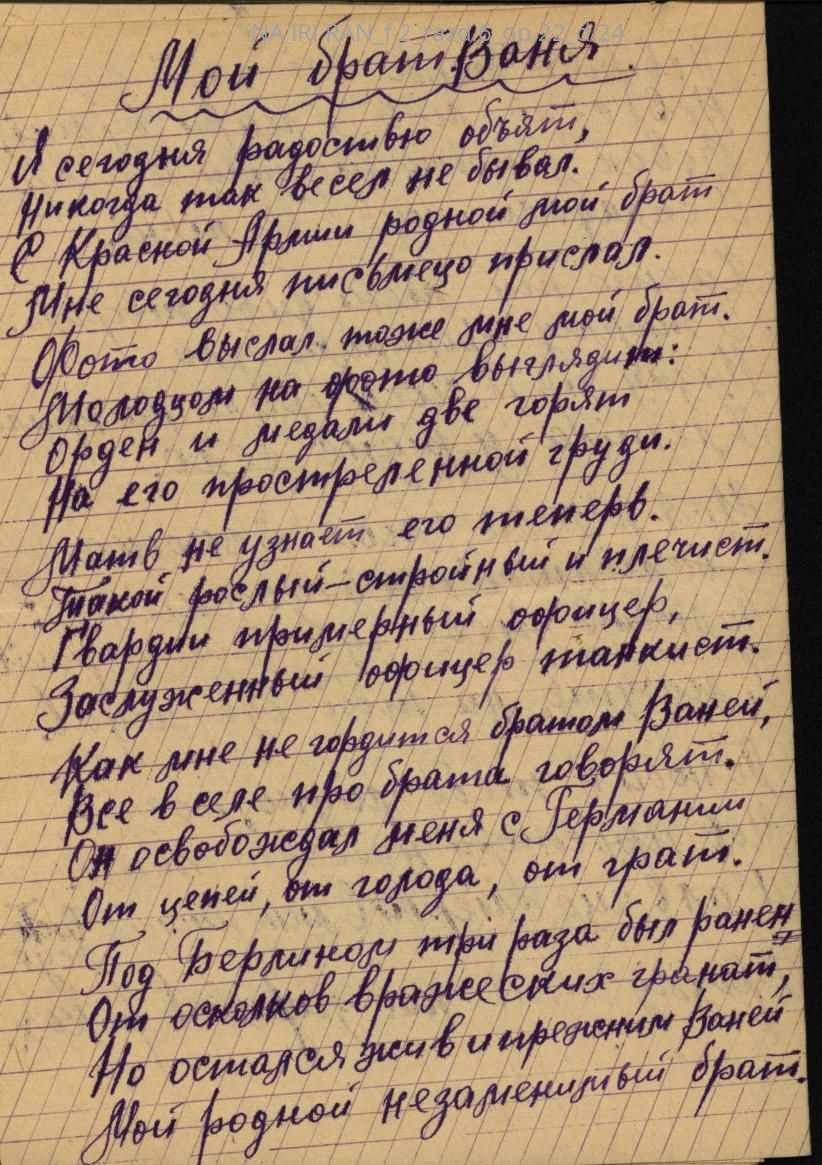 NA IRI RAN_f.2_razd.6_op.22_d.24
Мой брат Ваня.
Я сегодня радостью объят,
Никогда так весел не бывал.
С Красной Армии родной мой брат
Мне сегодня письмецо прислал.
Фото выслал тоже мне мой брат.
Молодцом на фото выглядит:
Орден и медали две горят
На его простреленной груди.
Мать не узнает его теперь.
Такой рослый-стройный и плечист.
Гвардии примерный офицер,
Заслуженный офицер танкист.
Как мне не гордится братом Ваней,
Все в селе про брата говорят.
Он освобождал меня с Германии
От цепей, от голода, от грат.
Под Берлином три раза был ранен
От осколков вражеских гранат,
Но остался жив и прежним Ваней
Мой родной незаменимый брат.